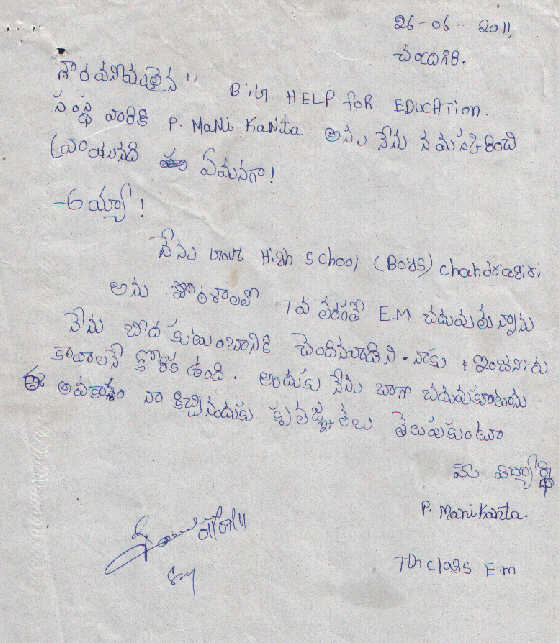 26-06-2011
చంద్రగిరి.
గౌరవనీయులైన " BiG HELP foR EDUCATION.
సంస్థ వారికి P. MaNi Kanta అను నేను నమస్కరించి
వ్రాయునది ఏమనగా!
అయ్యా!
నేను High School (Boys) chandragiri
అను పాఠశాలలో 7వ తరగతి E.M చదువుతున్నాను
నేను బీద కుటుంబానికి చెందినవాడిని. నాకు ఇంజనీరు
కావాలనే కోరిక ఉంది. అందుకు నేను బాగా చదువుకుంటాను
ఈ అవకాశం నా కిచ్చినందుకు కృతజ్ఞతలు తెలుపుకుంటూ
మీ విద్యార్థి
P. Manikanta.
7th class E m